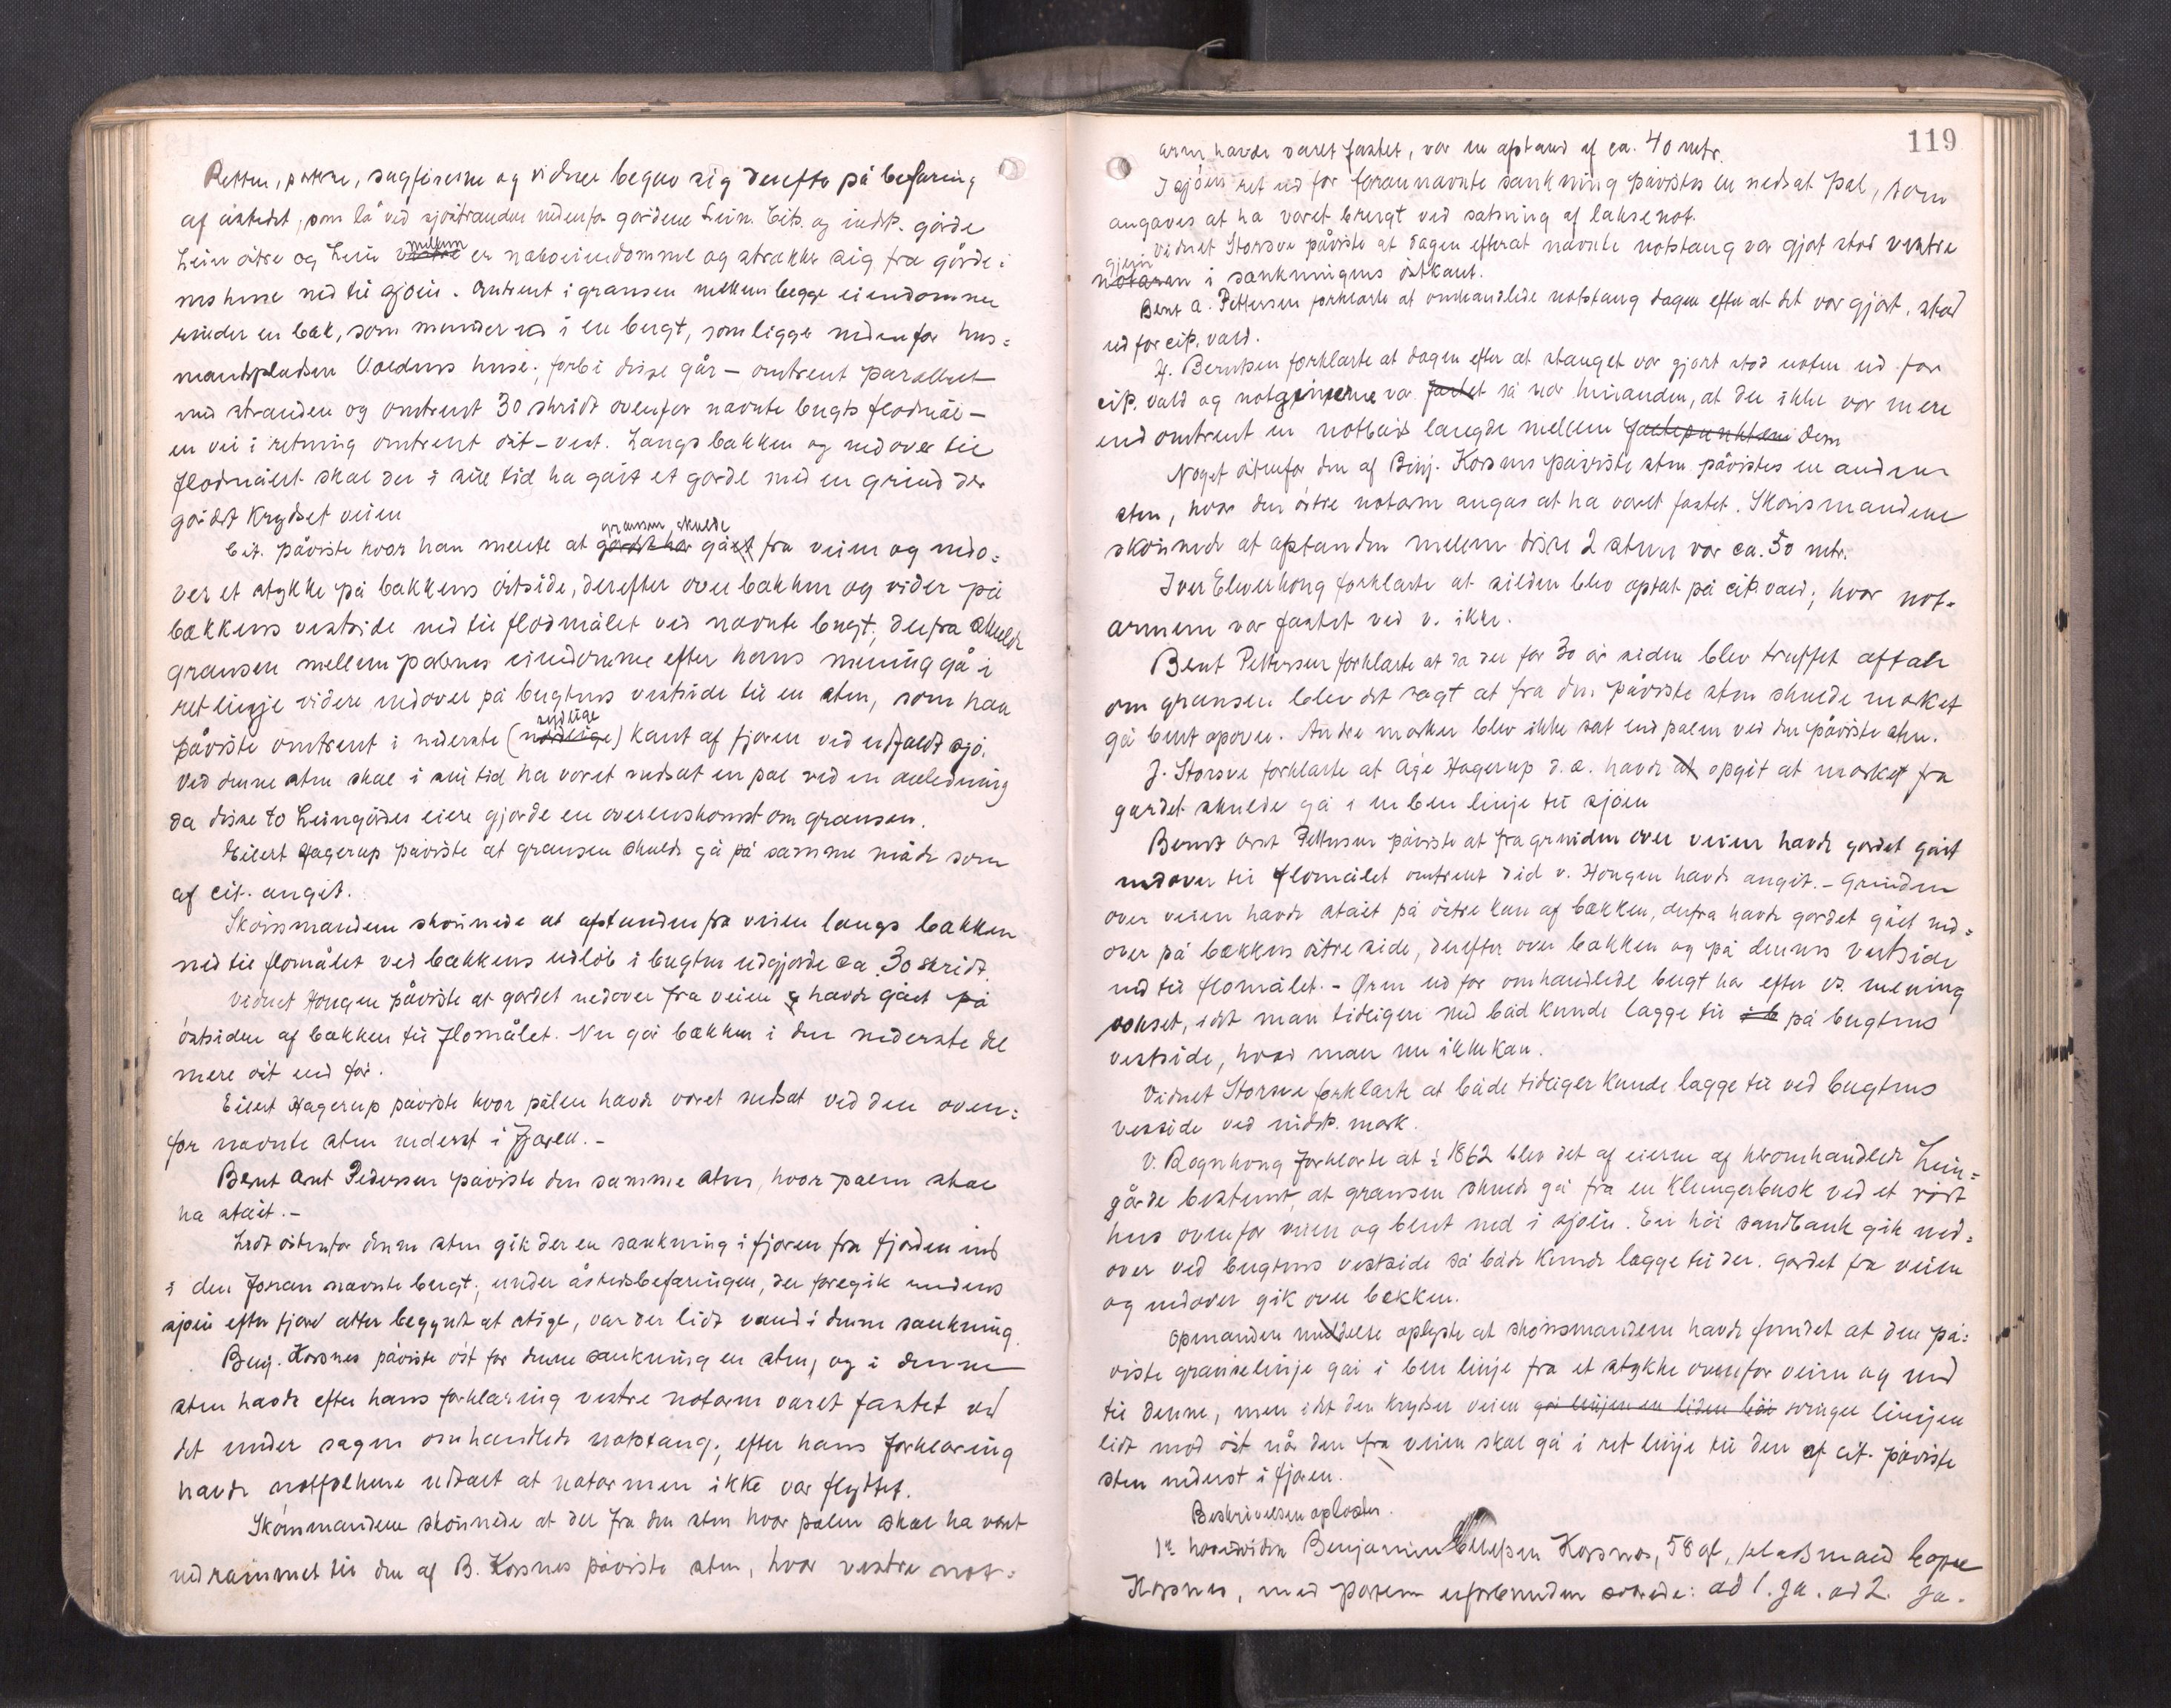 Retten, parterne, sagførerne og vidner begav sig derefter på befaring
af åstedet, som lå ved sjøstranden nedenfor gårdene Lein. Cit. og indst. gårde
Lein østre og Lein mellem er naboeiendomme og strækker sig fra gårde-
nes huse ned til sjøen. Omtrent i grænsen mellem begge eiendomme
rinder en bæk, som munder ud i en bugt, som ligger nedenfor hus-
mandspladsen Voldens huse; forbi disse går – omtrent parallelt
med stranden og omtrent 30 skridt ovenfor nævnte bugts flodmål –
en vei i retning omtrent øst-vest. Langs bækken og nedover til
flodmålet skal der i sin tid ha gået et gjærde med en grind der
gårdet krydset veien
Cit. påviste hvor han mente at grænsen skulde gå fra veien og nedo-
ver et stykke på bækkens østside, derefter over bækken og vider på
bækkens vestside ned til flodmålet ved nævnte bugt; derfra skulde
grænsen mellem parternes eiendomme efter hans mening gå i
ret linje videre nedover på bugtens vestside til en sten, som han
påviste omtrent i nederste (nordlige sydlige) kant af fjæren ved utfaldt sjø.
Ved denne sten skal i sin tid ha været nedsat en pæl ved en anledning
da disse to Leingårdes eiere gjorde en overenskomst om grænsen.
Eilert Hagerup påviste at grænsen skulde gå på samme måde som
af cit. angit.
Skønsmændene skønnede at afstanden fra veien langs bækken
ned til flomålet ved bækkens udløb i bugten udgjorde ca. 30 skridt.
Vidnet Hongen påviste at gærdet nedover fra veien havde gået på
østsiden af bækken til flomålet. Nu går bækken i den nederste del
mere øst end før.
Eilert Hagerup påviste hvor pælen havde været nedsat ved den oven-
for nævnte sten nederst i fjæren. –
Bernt Arnt Pedersen påviste den samme sten, hvor pælen skal
ha stået. –
Lidt østenfor denne sten gik der en sænkning i fjæren fra fjorden ind
i den foran nævnte bugt; under åstedsbefaringen, der foregik medens
sjøen efter fjære atter begyndt at stige, var der lidt vand i denne sænkning.
Benj. Korsnes påviste øst for denne sænkning en sten, og i denne
sten havde efter hans forklaring vestre notarm været fæstet ved
det under sagen omhandlede notstæng; efter hans forklaring
havde notfolkene udsagt at notarmen ikke var flyttet.
Skønsmændene skønnede at der fra den sten hvor pælen skal ha været
nedrammet til den af B. Korsnes påviste sten, hvor vestre not-
119
arm havde været fæstet, var en afstand af ca. 40 mtr.
I sjøen ret ud for forannævnte sænkning påvistes en nedsat pæl, som
angaves at ha været brugt ved sætning af laksenot.
Vidnet Storsve påviste at dagen efterat nævnte notstæng var gjort stod vestre
notarm i sænkningens østkant.
Bernt A. Pettersen forklarte at omhandlede notstæng dagen efter at det var gjort, stod
ud for cit. vald.
H. Berntsen forklarte at dagen efter at stænget var gjort stod noten ud for
cit. vald og not var fæstet så nær hinanden, at der ikke var mere
end omtrent en notbåds længde mellem fæstepunkterne dem
Noget østenfor den af Benj. Korsnes påviste sten påvistes en anden
sten, hvor den østre notarm angas at ha været fæstet. Skønsmændene
skønnede at afstanden mellem disse 2 stene var ca. 50 mtr.
Iver Elverhøug forklarte at silden blev optat på cit. vald; hvor not-
armene var fæstet ved v. ikke.
Bernt Pettersen forklarte at da der for 30 år siden blev truffet aftale
om grænsen blev det sagt at fra den påviste sten skulde mærket
gå bent opover. Andre mærker blev ikke sat end pælen ved den påviste sten.
J. Storsve forklarte at Åge Hagerup d.æ. havde at opgit at mærket fra
gærdet skulde gå i en ben linje til sjøen
Bernt Arnt Pettersen påviste at fra grinden over veien havde gærdet gået
nedover til flomålet omtrent did v. Hongen havde angit. – Grinden
over veien havde stået på østre kan af bækken, derfra havde gærdet gået ned-
over på bækkens østre side, derefter over bækken og på dennes vestside
ned til flomålet. – Øren ud for omhandlede bugt har efter vs. mening
vokset, idet man tidligere med båd kunde lægge til på bugtens
vestside, hvad man nu ikke kan.
Vidnet Storsve forklarte at både tidliger kunde lægge til ved bugtens
vesside ved indst. mark.
V. Rognhaug forklarte at i 1862 blev det af eierne af heromhandlede Lein-
gårde bestemt, at grænsen skulde gå fra en klungerbusk ved et røst
hus ovenfor veien og bent ned i sjøen. En høi sandbank gik ned-
over ved bugtens vestside så både kunde lægge til der. Gærdet fra veien
og nedover gik over bækken.
Opmanden meddelte oplyste at skønsmændene havde fundet at den på-
viste grænselinje går i ben linje fra et stykke ovenfor veien og ned
til denne, men idet den krydser veien gør linjen en liden bøi svinger linjen
lidt mod øst når den fra veien skal gå i ret linje til den af cit. påviste
sten nederst i fjæren.
Beskrivelsen oplæstes.
1ste hovedvidne Benjamin Korsnes, 58 gl., pladsmand
Korsnes, med parterne uforbunden svarede: ad 1. ja. ad 2. ja.